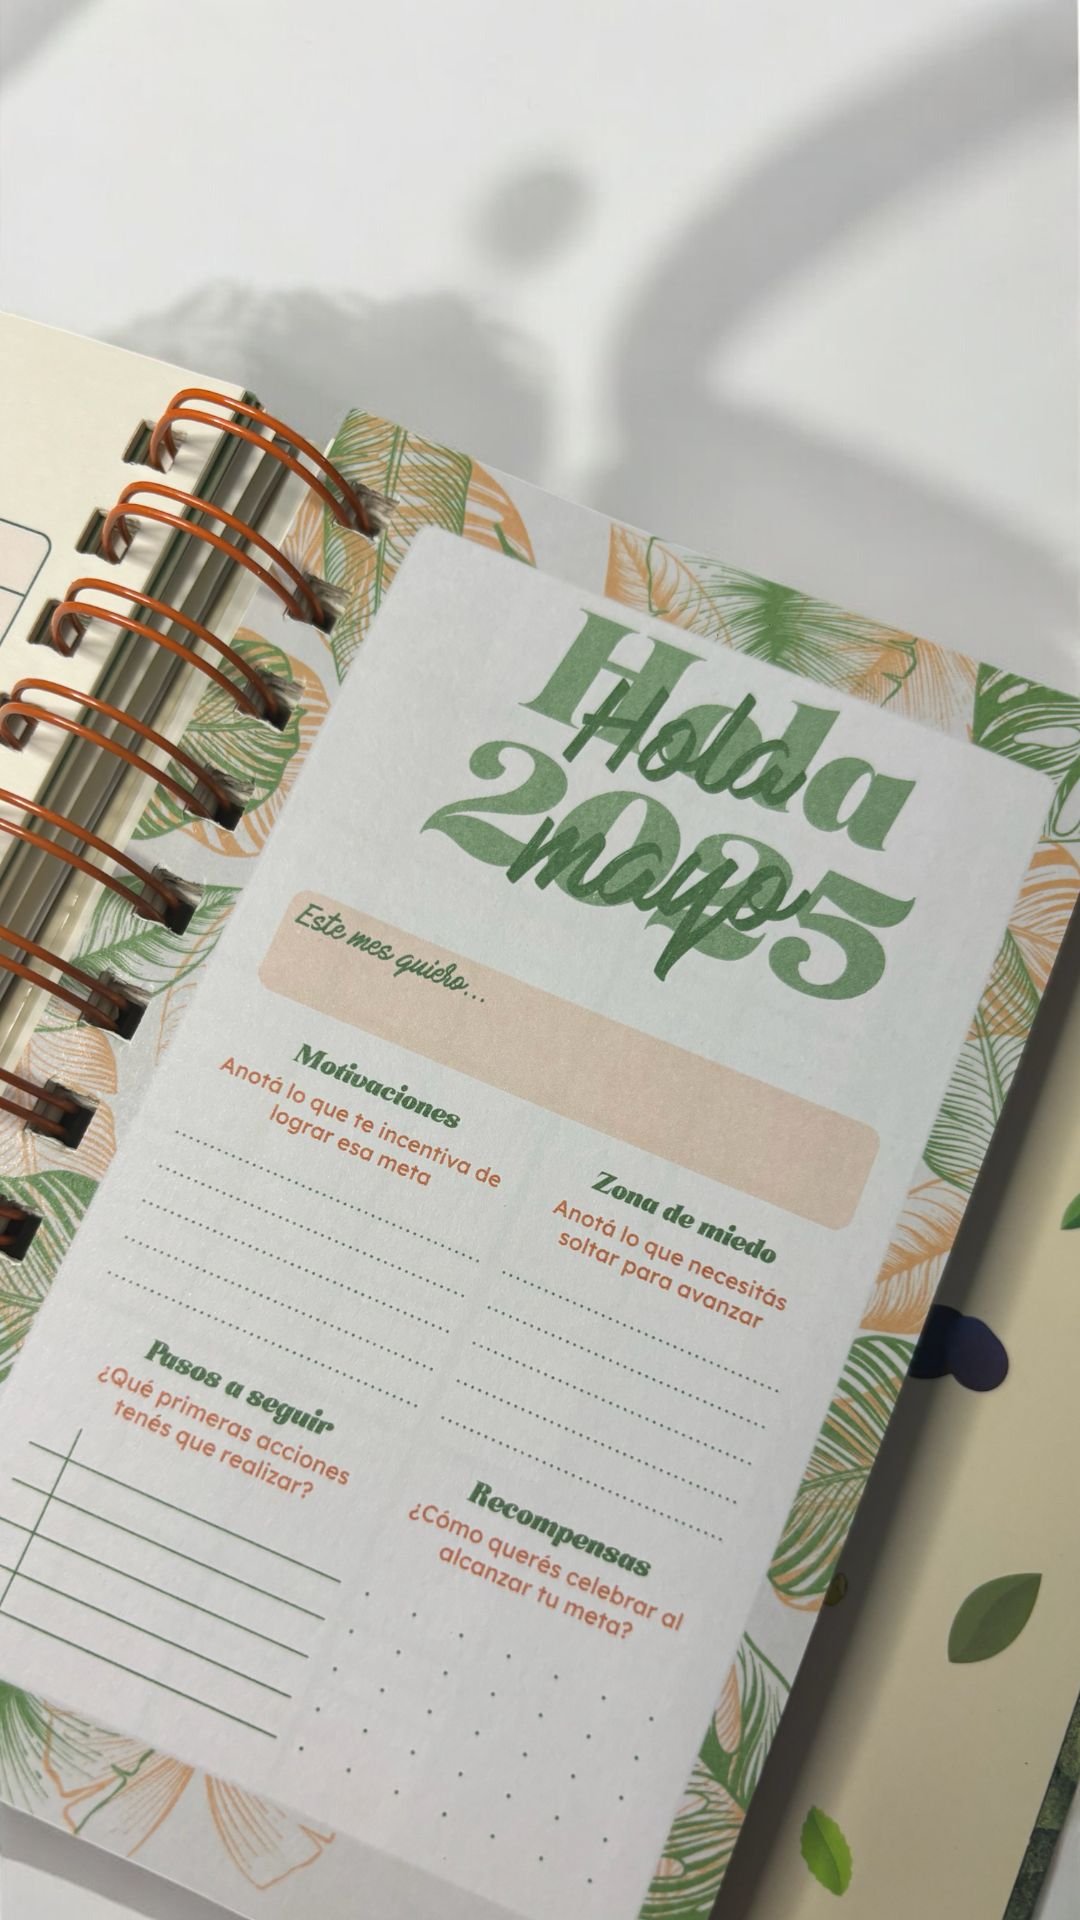 Hola
2025
Hola
mayo
Este mes quiero...
Motivaciones
Anotá lo que te incentiva de
lograr esa meta
Zona de miedo
Anotá lo que necesitás
soltar para avanzar
Pasos a seguir
¿Qué primeras acciones
tenés que realizar?
Recompensas
¿Cómo querés celebrar al
alcanzar tu meta?